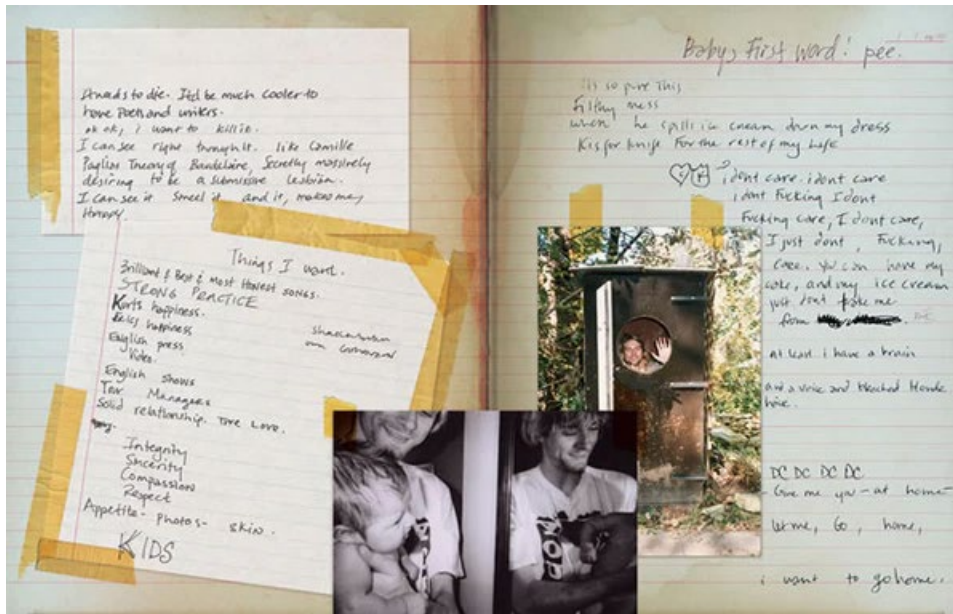 It needs to die. It'd be much cooler to
have Poets and writers.
ok ok, i want to kill it.
I can see right through it. like Camille
Paglias Theory of Baudelaire, Secretly massively
desiring to be a submissive lesbian.
I can see it smell it and it, makes me
Hungry.
Things I want.
Brilliant & Best & most Honest songs.
STRONG PRACTICE
Kurts happiness.
happiness
English press
Video.
English shows
Tour Managers
Solid relationship. True Love.
Integrity
Sincerity
Compassion
Respect
Appetite - Photos - Skin.
KIDS
Baby's First word! pee.
Its so pure This
Filthy mess
when he spills ice cream down my dress
K is for knife For the rest of my Life
i dont care. i dont care
i dont Fucking I dont
Fucking care, I dont care,
I just dont, Fucking,
care. You can have my
coke, and my ice cream
just dont take me
from
at least i have a brain
and a voice and bleached blonde
hair.
DC DC DC DC
Give me you - at home -
let me, Go, home,
i want to go home.